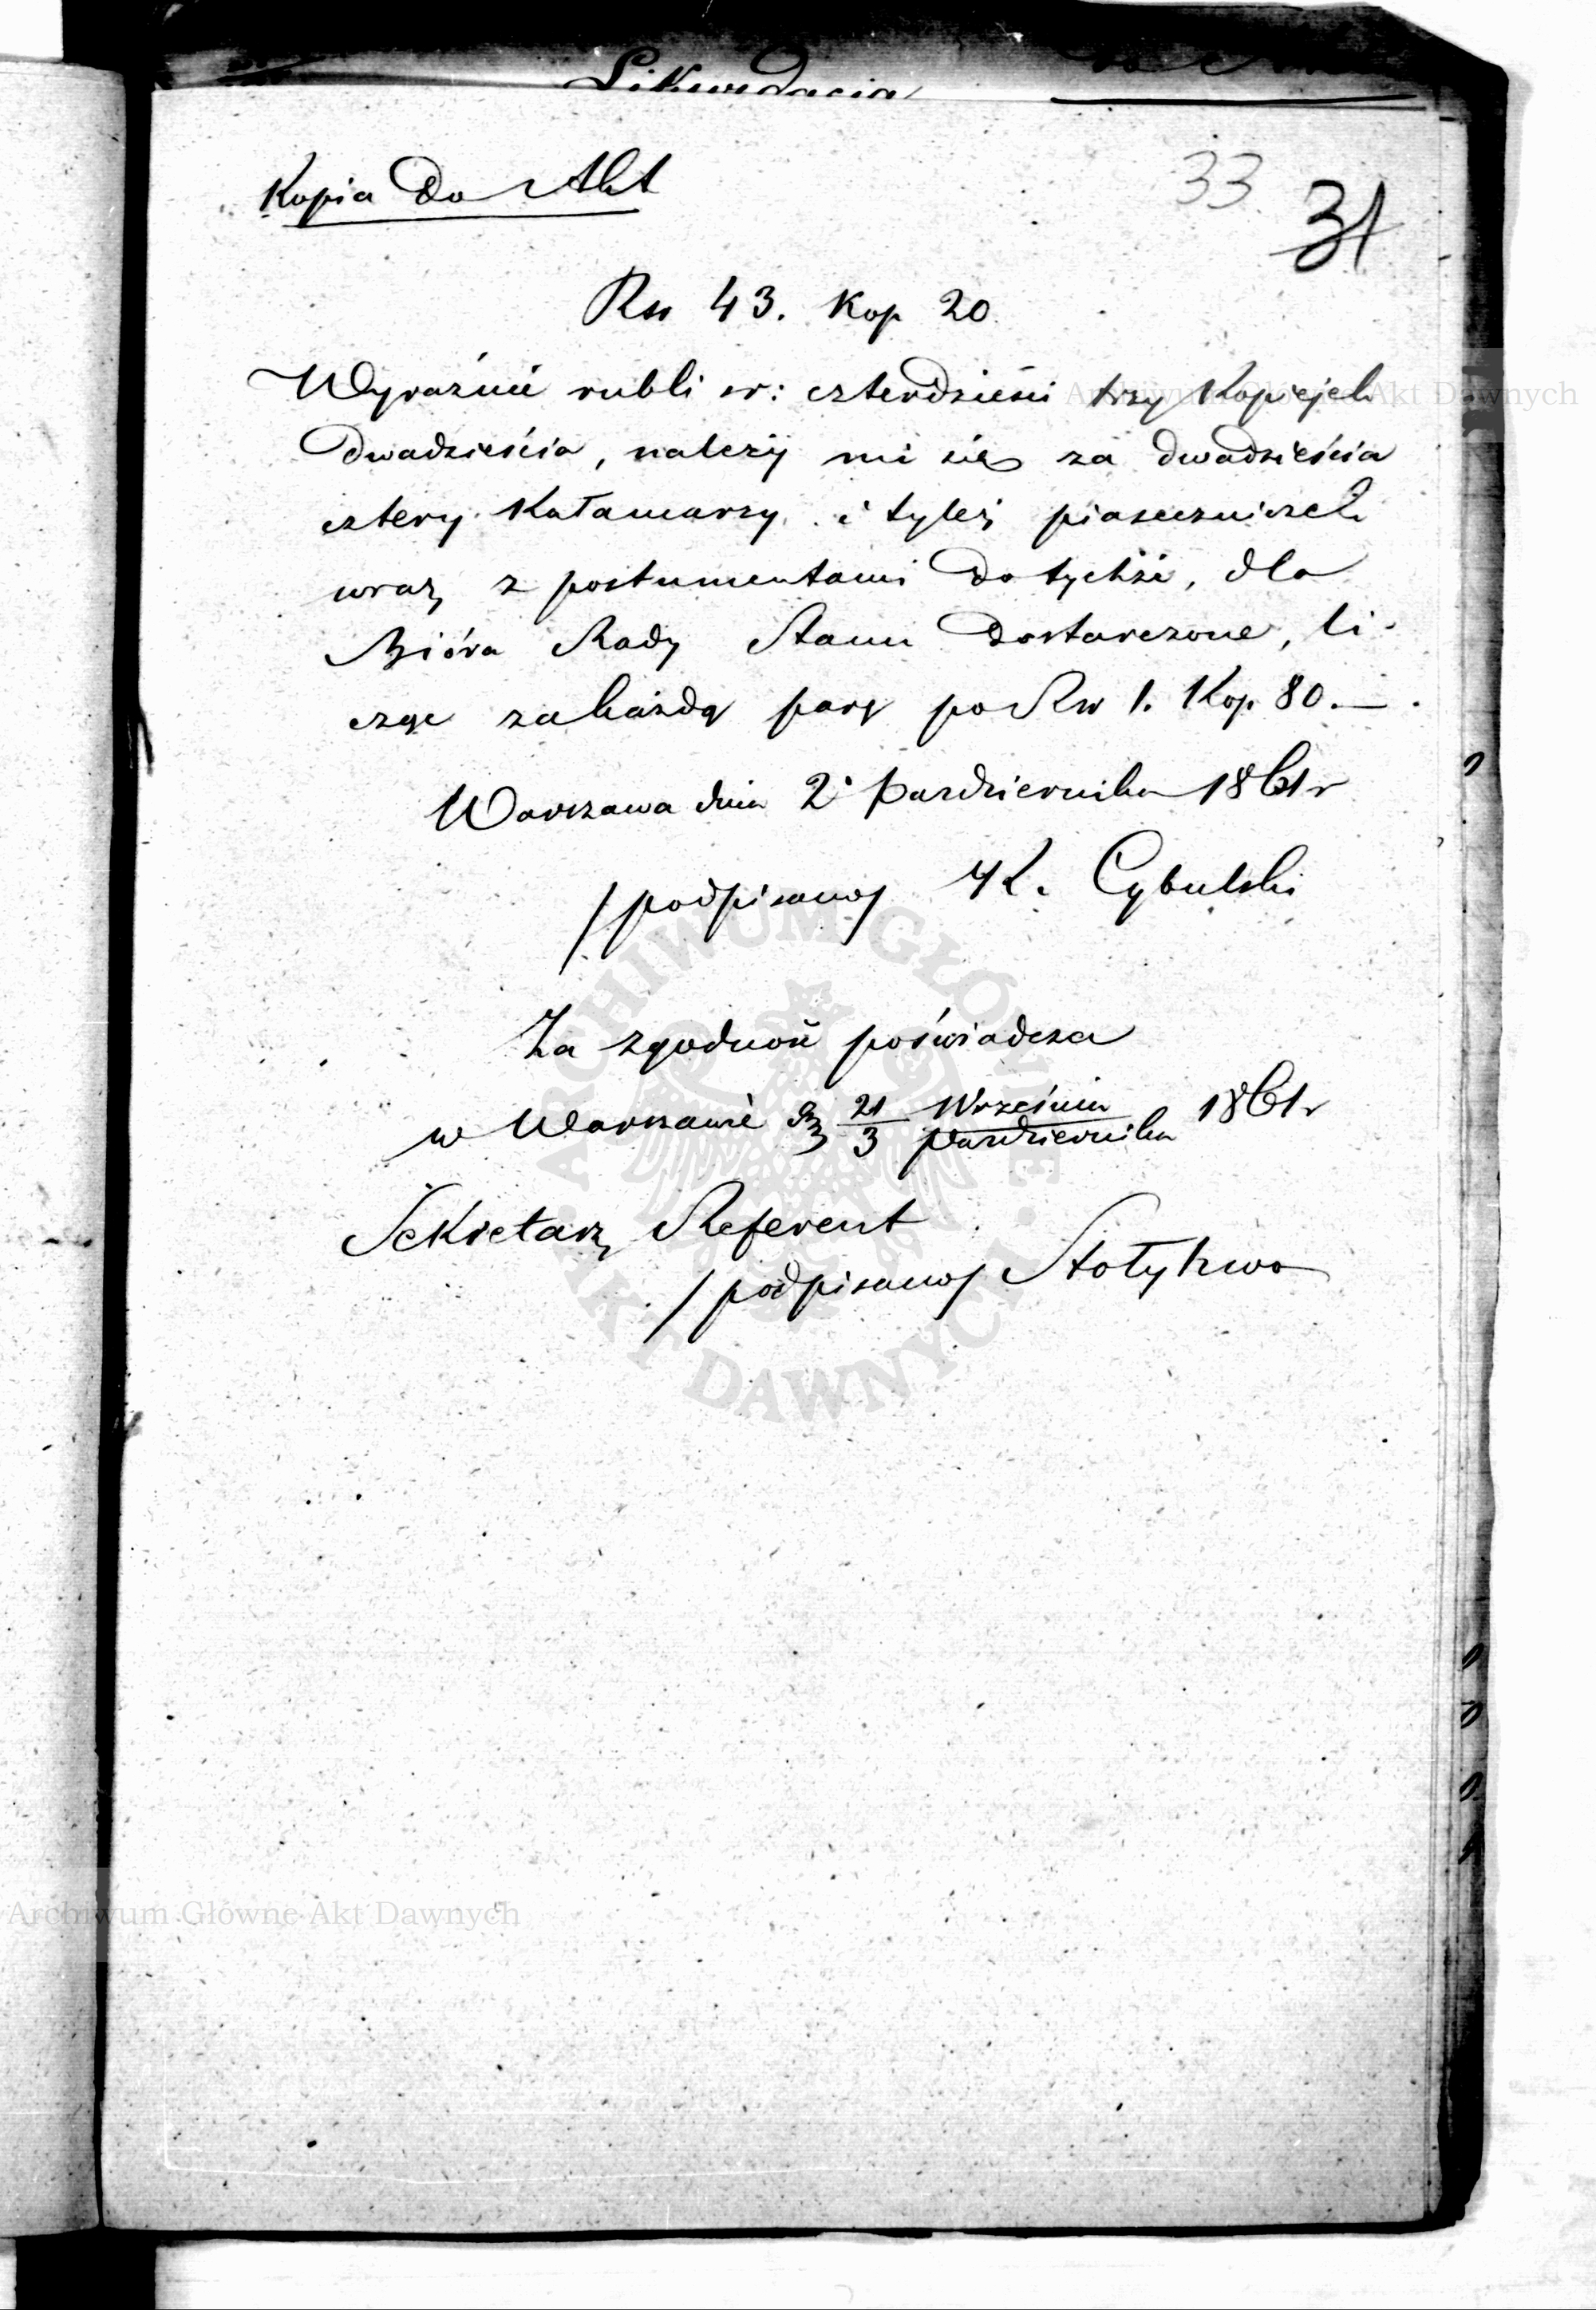 Likwidacja
Kopia do Akt
33
31
Rsr 43. Kop 20.
Wyraźnie rubli sr: czterdzieści trzy Kopiejek
dwadzieścia, należy mi się za dwadzieścia
cztery Kałamarzy i tyleż piaseczniczek
wraz z postumentami do tychże, dla
Bióra Rady Stanu dostarczone, li-
cząc za każdą parę po Rsr 1. Kop. 80.—.
Warszawa dnia 2 Pazdziernika 1861 r
/podpisany/ K. Cybulski
Za zgodność poświadcza
w Warszawie d. 21 Września
3 Pazdziernika 1861 r
Sekretarz Referent
/podpisany/ Stołyhwo
Archiwum Główne Akt Dawnych
ARCHIWUM GŁÓWNE AKT DAWNYCH
Archiwum Główne Akt Dawnych